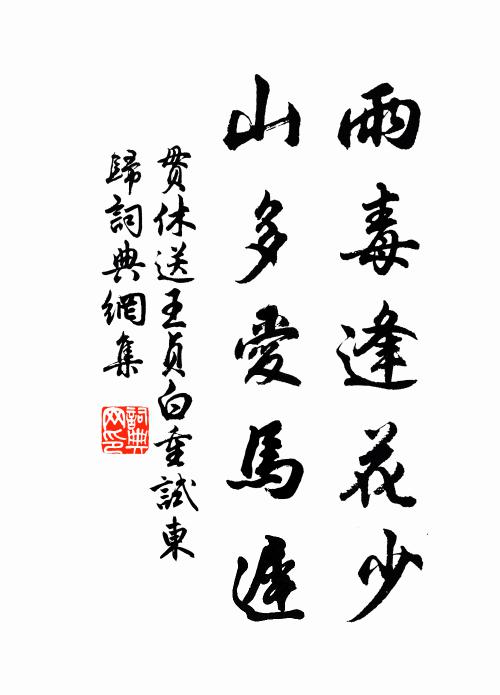 雨毒逢花少
山多愛馬遲
貫休送王貞白重試東
歸詞典網集
詞典
网印